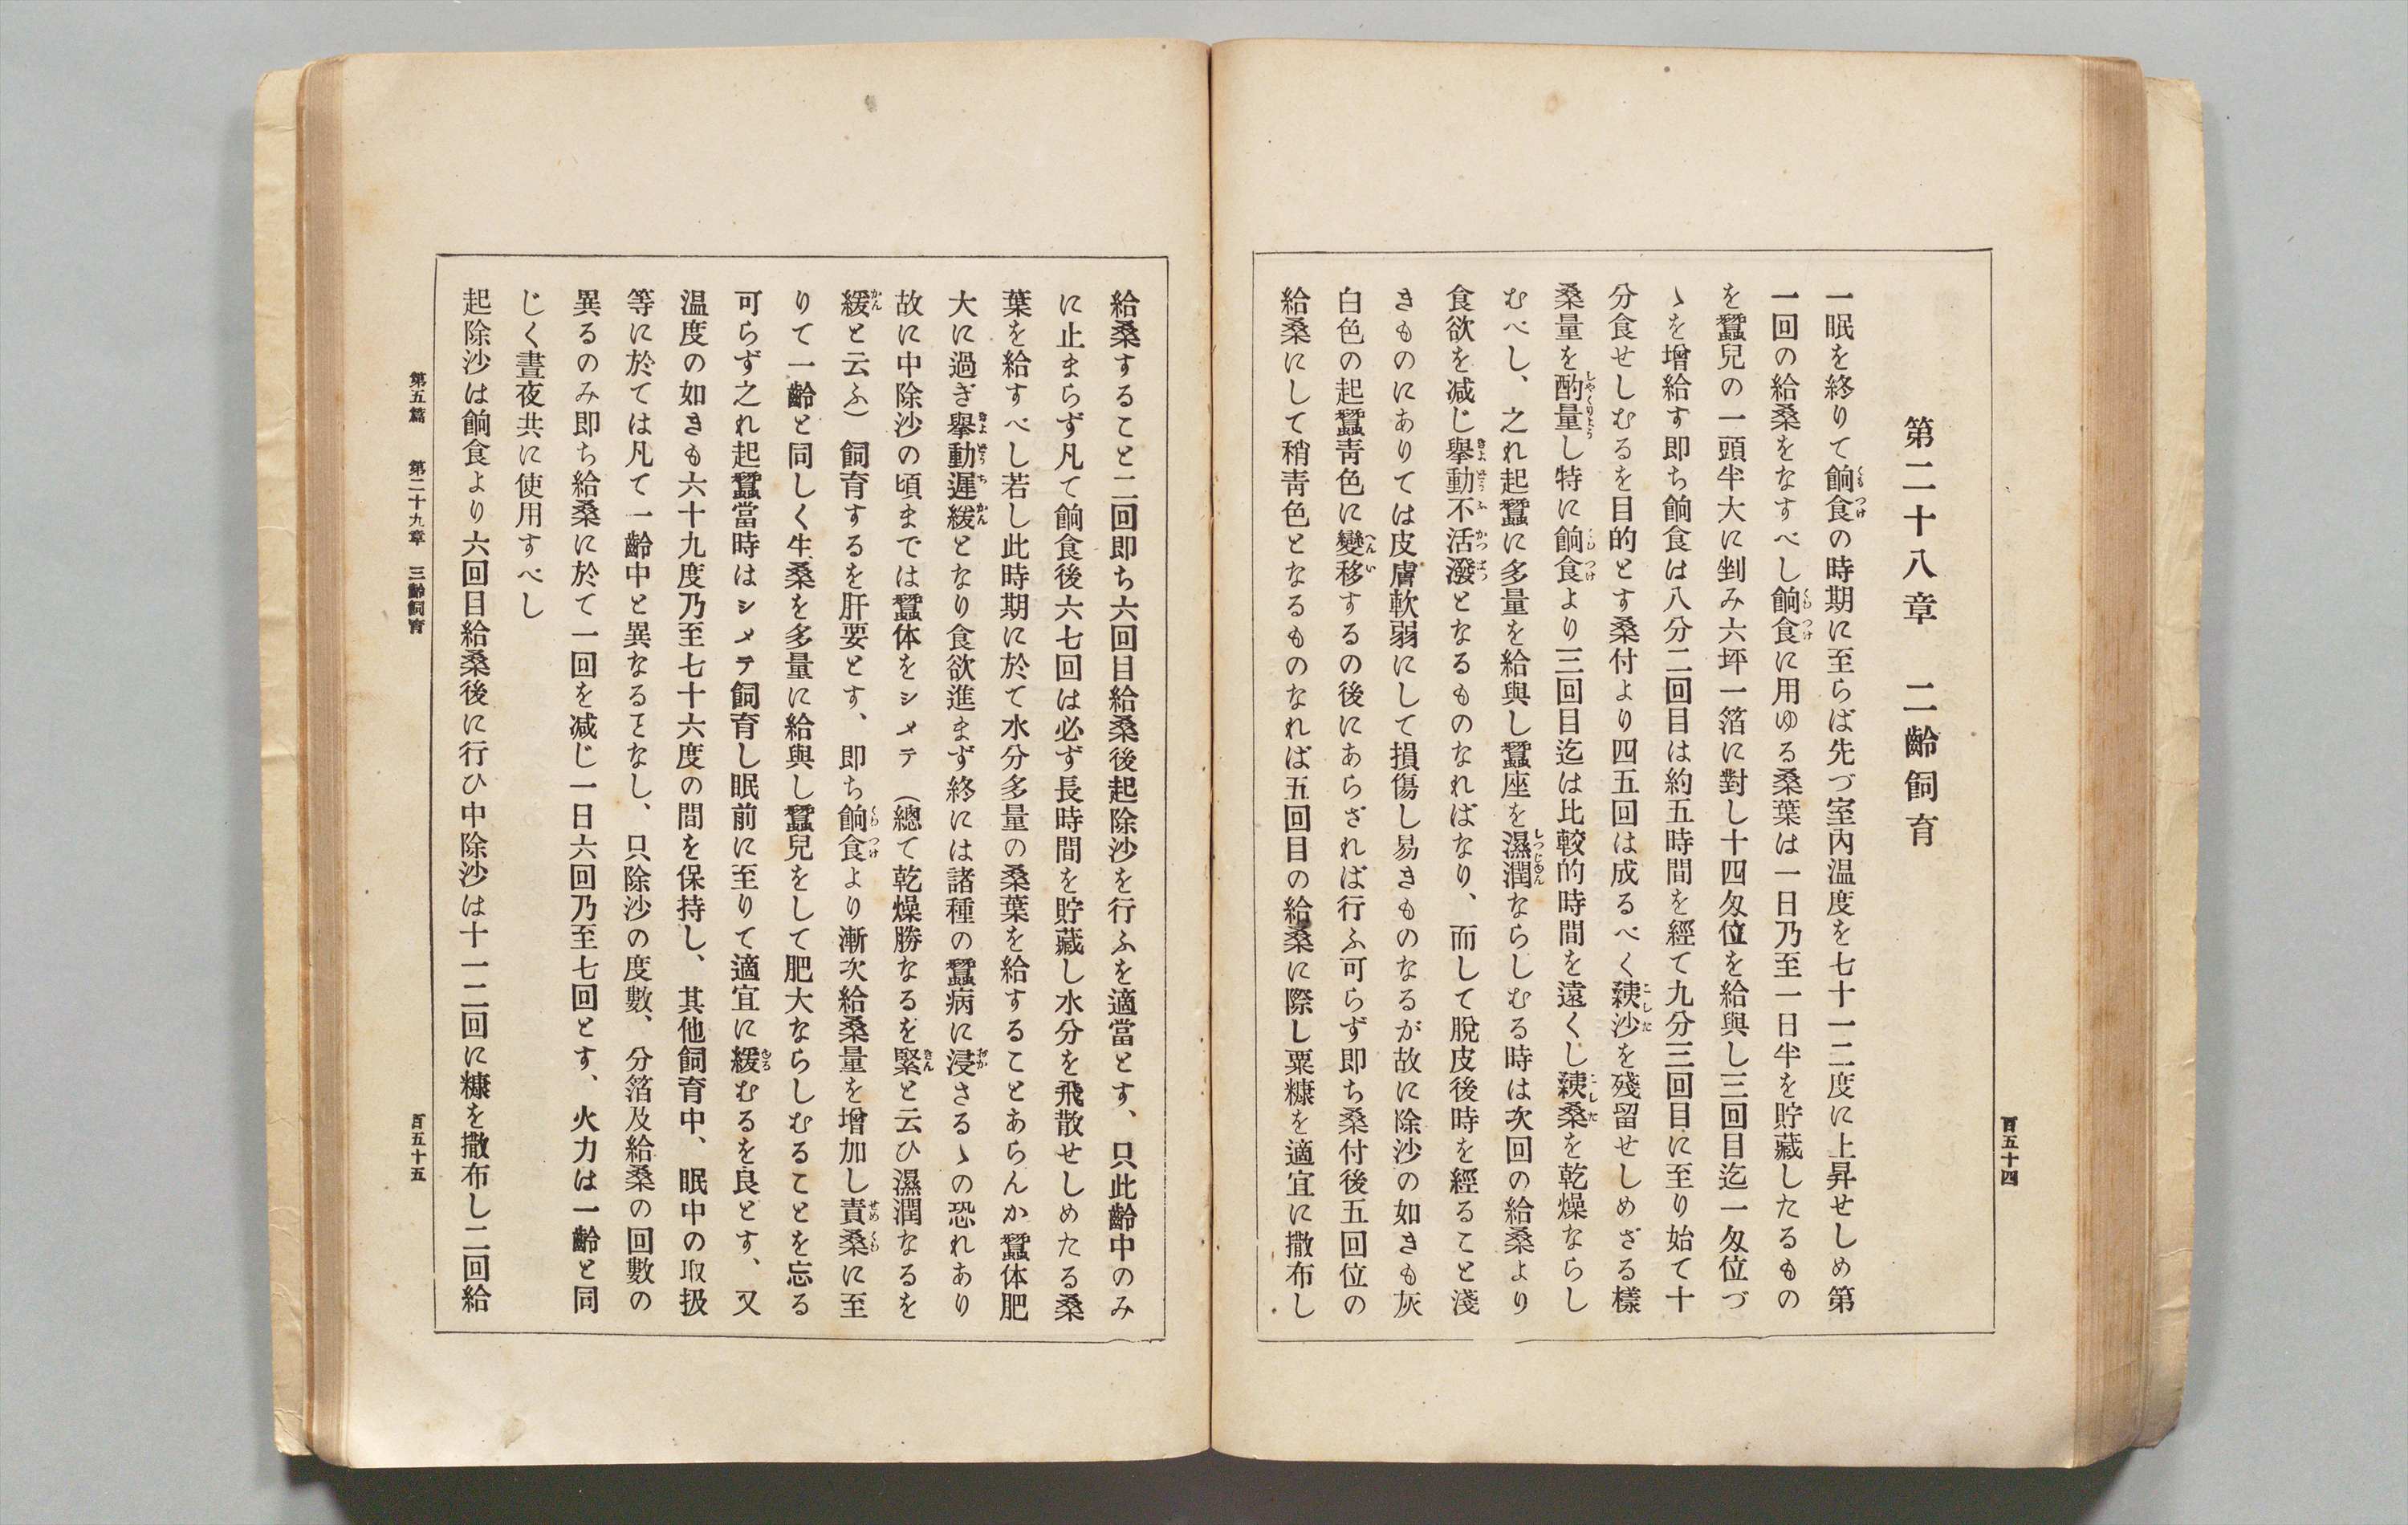 百五十四
第二十八章　二齡飼育
一眠を終りて餉食の時期に至らば先づ室內温度を七十一二度に上昇せしめ第
一回の給桑をなすべし餉食に用ゆる桑葉は一日乃至一日半を貯藏したるもの
を蠶兒の一頭半大に剉み六坪一箔に對し十四匁位を給與し三回目迄一匁位づ
ゝを增給す即ち餉食は八分二回目は約五時間を經て九分三回目に至り始て十
分食せしむるを目的とす桑付より四五回は成るべく䴬沙を殘留せしめざる樣
桑量を酌量し特に餉食より三回目迄は比較的時間を遠くし䴬桑を乾燥ならし
むべし、之れ起蠶に多量を給與し蠶座を濕潤ならしむる時は次回の給桑より
食欲を减じ擧動不活潑となるものなればなり、而して脫皮後時を經ること淺
きものにありては皮膚軟弱にして損傷し易きものなるが故に除沙の如きも灰
白色の起蠶靑色に變移するの後にあらざれば行ふ可らず即ち桑付後五回位の
給桑にして稍靑色となるものなれば五回目の給桑に際し粟糠を適宜に撒布し
給桑すること二回即ち六回目給桑後起除沙を行ふを適當とす、只此齡中のみ
に止まらず凡て餉食後六七回は必ず長時間を貯藏し水分を飛散せしめたる桑
葉を給すべし若し此時期に於て水分多量の桑葉を給することあらんか蠶体肥
大に過ぎ擧動遲緩となり食欲進まず終には諸種の蠶病に浸さるゝの恐れあり
故に中除沙の頃までは蠶体をシメテ（總て乾燥勝なるを緊と云ひ濕潤なるを
緩と云ふ）飼育するを肝要とす、即ち餉食より漸次給桑量を增加し責桑に至
りて一齡と同しく生桑を多量に給與し蠶兒をして肥大ならしむることを忘る
可らず之れ起蠶當時はシメテ飼育し眠前に至りて適宜に緩むるを良とす、又
温度の如きも六十九度乃至七十六度の間を保持し、其他飼育中、眠中の取扱
等に於ては凡て一齡中と異なるヿなし、只除沙の度數、分箔及給桑の回數の
異るのみ即ち給桑に於て一回を减じ一日六回乃至七回とす、火力は一齡と同
じく晝夜共に使用すべし
起除沙は餉食より六回目給桑後に行ひ中除沙は十一二回に糠を撒布し二回給
第五篇　第二十九章　三齡飼育
百五十五